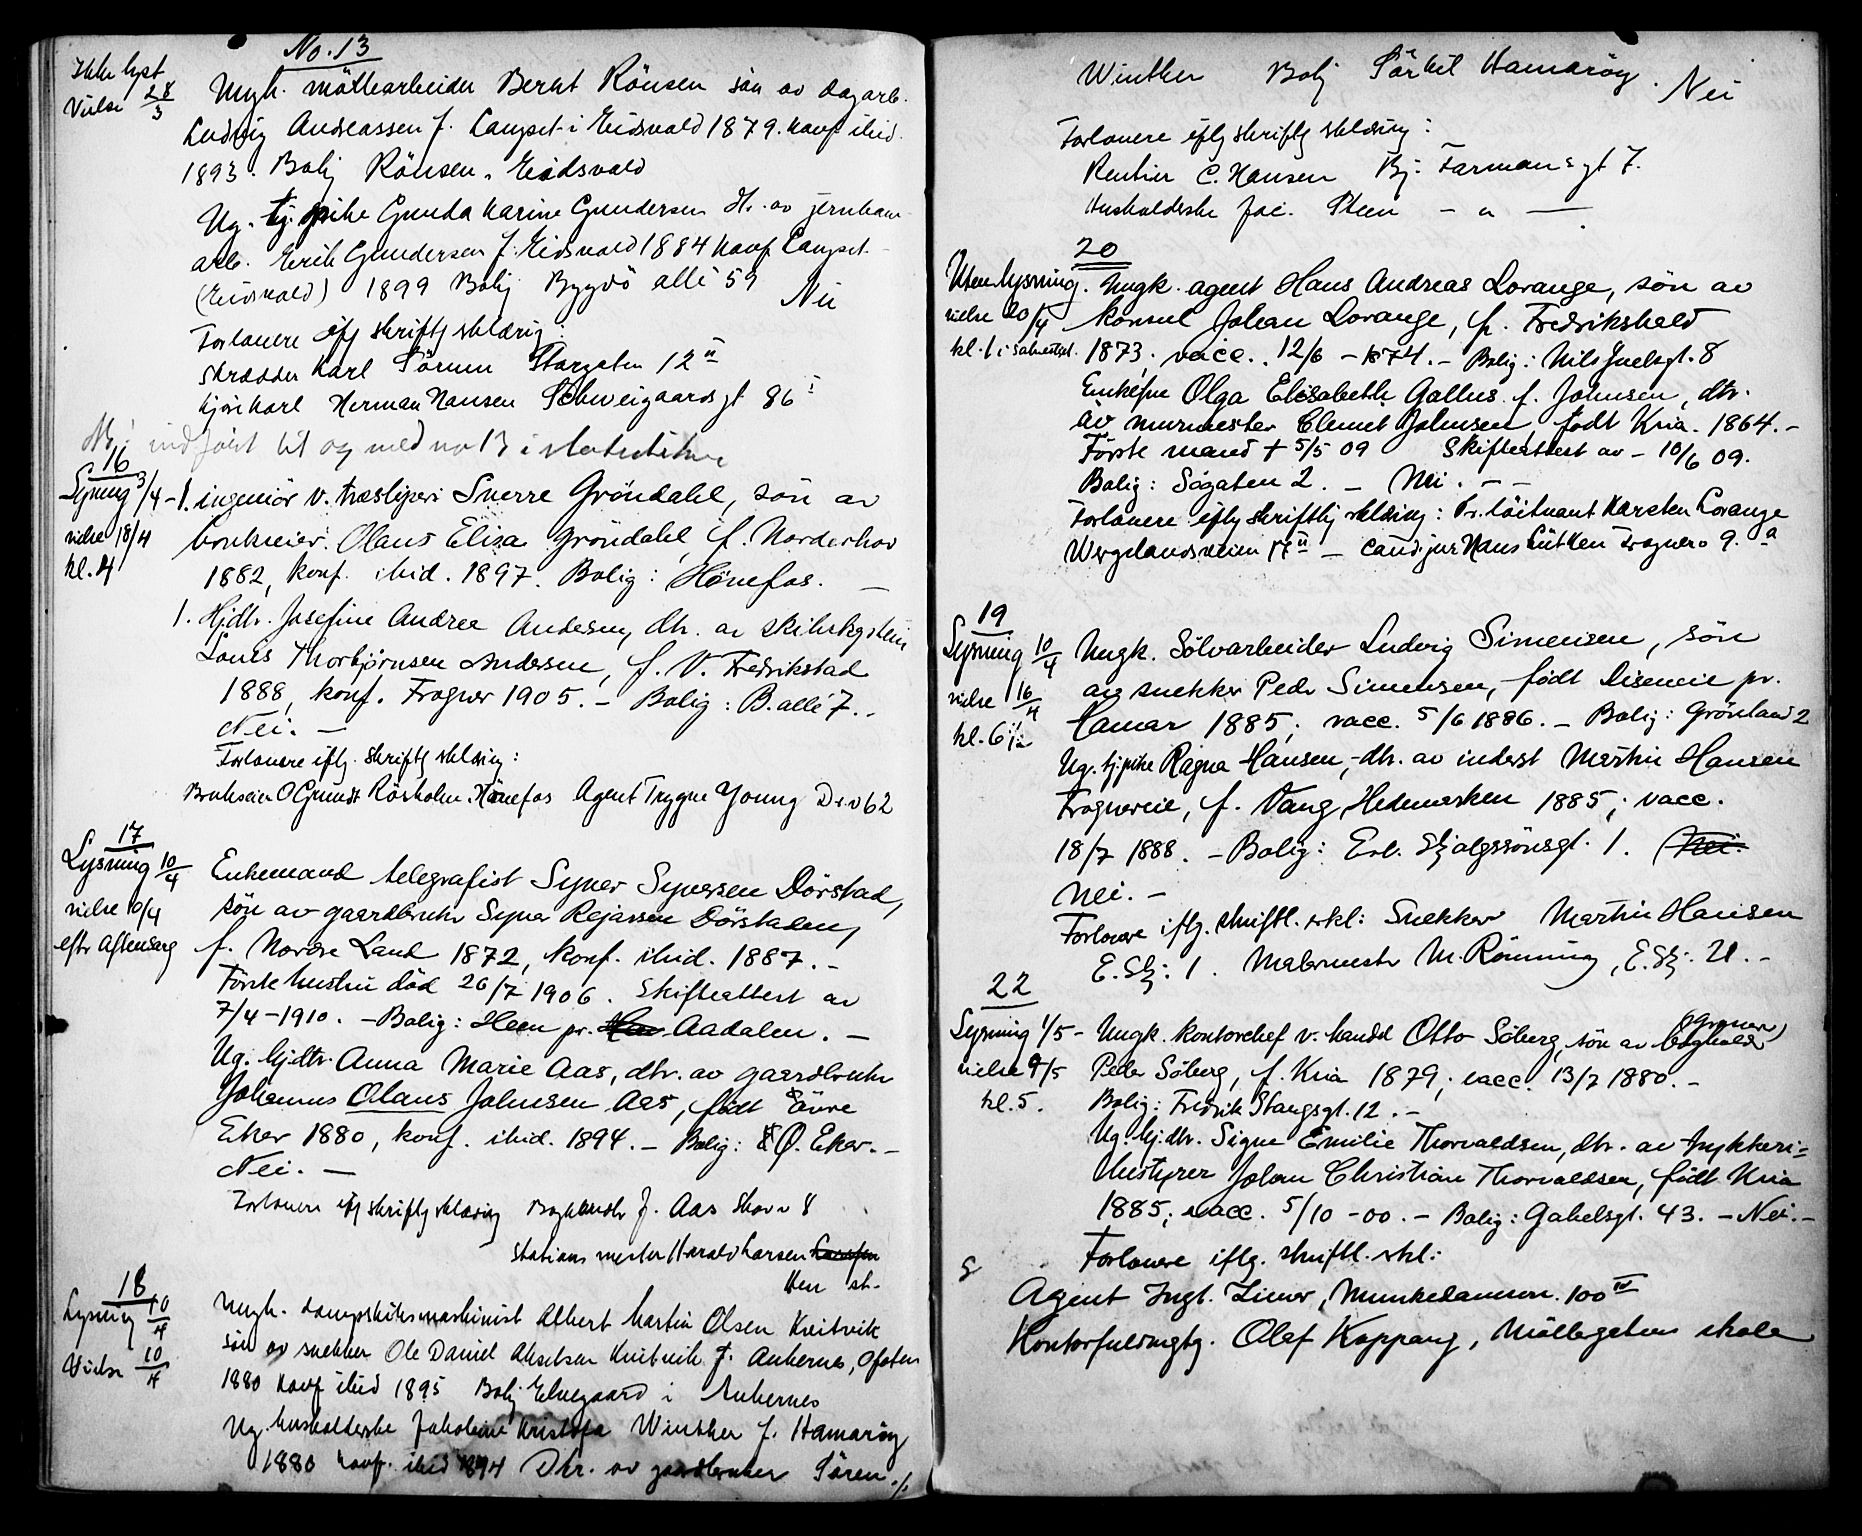 No. 13
Ikke lyst
Vielse 28/3
Ungk. möllearbeider Bernt Rönsen sön av dagarb.
Ludvig Andreassen f. Langset i Eidsvold 1879. konf ibid.
1893. Bolig Rönsen, Eidsvold
Ug. tj. pike Gunda Karine Gundersen dtr. av jernbane
arb. Erik Gundersen f. Eidsvold 1884 konf Langset
(Eidsvold) 1899 Bolig Bygdö allé 59 Nei
Forlovere iflg skriftlig erklæring:
Skrædder Karl Sörum Storgaten 12 II
kjörekarl Herman Hansen Schweigaards gt 86 I
NB: indfört til og med no 13 i
16
Lysning 3/4
vielse 18/4
kl. 4
1. ingeniör v. træsliperi Sverre Gröndahl, sön av
brukseier Olaus Elisa Gröndahl, f. Norderhov
1882, konf. ibid. 1897. Bolig: Hönefos. —
1. Hjdtr. Josefine Andrea Andersen, dtr. av
Louis Thorbjörnsen Andersen, f. V. Fredrikstad
1888, konf. Frogner 1905. — Bolig: B. allé 7. -
Nei. —
Forlovere iflg. skriftlig erklæring:
Brukseier O Grundt Rösholm. Hönefos Agent Trygve Young D.v 62
17
Lysning 10/4
vielse 10/4
eftr Aftensang
Enkemand telegrafist Syver Syversen Dörstad,
sön av gaardbruker Syver Dörstaden,
f. Nordre Land 1872, konf. ibid. 1887. -
Förste hustru död 26/7 1906. Skifteattest av
7/4 - 1910. - Bolig: Heen pr. Aadalen. —
Ug. hjdtr. Anna Marie Aas, dtr. av gaardbruker
Johannes Olaus Johnsen Aas, födt Övre
Eker 1880, konf. ibid. 1894. - Bolig: Ö. Eker. -
Nei. —
Forlovere iflg skriftlig erklæring J. Aas Skovv 8
Stationsmester Harald Larsen
Hen st.
18
Lysning 10/4
Vielse 10/4
Ungk. dampskibsmaskinist Albert Martin Olsen Kvitvik
sön av snekker Ole Daniel Akselsen Kvitvik f. Ankenes, Ofoten
1880 konf ibid 1895 Bolig Elvegaard i Ankenes
Ug. husholderske Jakobine Kristofa Winther f. Hamaröy
1880 konf. ibid 1894 Dtr. av gaardbruker Sören ./.
Winther Bolig Hamaröy. Nei
Forlovere iflg skriftlig erklæring:
Rentier C. Hansen Bj: Farmansgt 7.
Husholderske Jac. Steen - " —
20
Uten lysning.
vielse 20/4
kl. 1 i
Ungk. agent Hans Andreas Lorange, sön av
konsul Johan Lorange, f. Fredrikshald
1873. vacc. 12/6 - 1874. - Bolig: Nils Juelsgt. 8
Enkefru Olga Elisabeth Gallus f. Johnsen, dtr.
av murmester Clemet Johnsen, födt Kria. 1864. -
Förste mand † 5/5 09 Skifteattest av - 10/6 09.
Bolig: Sögaten 2. — Nei. - -
Forlovere iflg skriftlig erklæring: Pr. löitnant Karsten Lorange
Wergelandsveien - cand. jur Hans Lütken Frognerv 9. a
19
Lysning 10/4
vielse 16/4
kl. 6 1/2
Ungk. Sölvarbeider Ludvig Simensen, sön
av snekker Peder Simensen, födt Diseneie pr.
Hamar 1885; vacc. 5/6 1886. - Bolig: Grönland 2
Ug. tj.pike Ragna Hansen, dtr. av inderst Martin Hansen
Frognereie, f. Vang, Hedemarken 1885; vacc.
18/7 1888. - Bolig: Erl. Skjalgssönsgt. 1. (Nei.
Nei. -
Forlovere iflg. skriftl. erkl: Snekker Martin Hansen
E. Skj: 1. Malermestr M. Rönning, E. Skj: 21. -
22
Lysning 1/5 -
vielse 9/5
kl. 5.
Ungk. kontorchef v. handel Otto Söberg, sön av bogholder
Peder Söberg, f. Kria 1879; vacc. 13/7 1880. -
Bolig: Fredrik Stangsgt. 12. -
Ug. hj.dtr. Signe Emilie Thorvaldsen, dtr. av trykkeri-
bestyrer Johan Christian Thorvaldsen, födt Kria
1885; vacc. 5/10 - 00. - Bolig: Gabelsgt. 43. - Nei. -
Forlovere iflg. skriftl. erkl:
Agent Ingb. Zimer, Munkedamsv. 100 IV
Kontorfuldmægtg. Olaf Koppang, Möllegatens skole